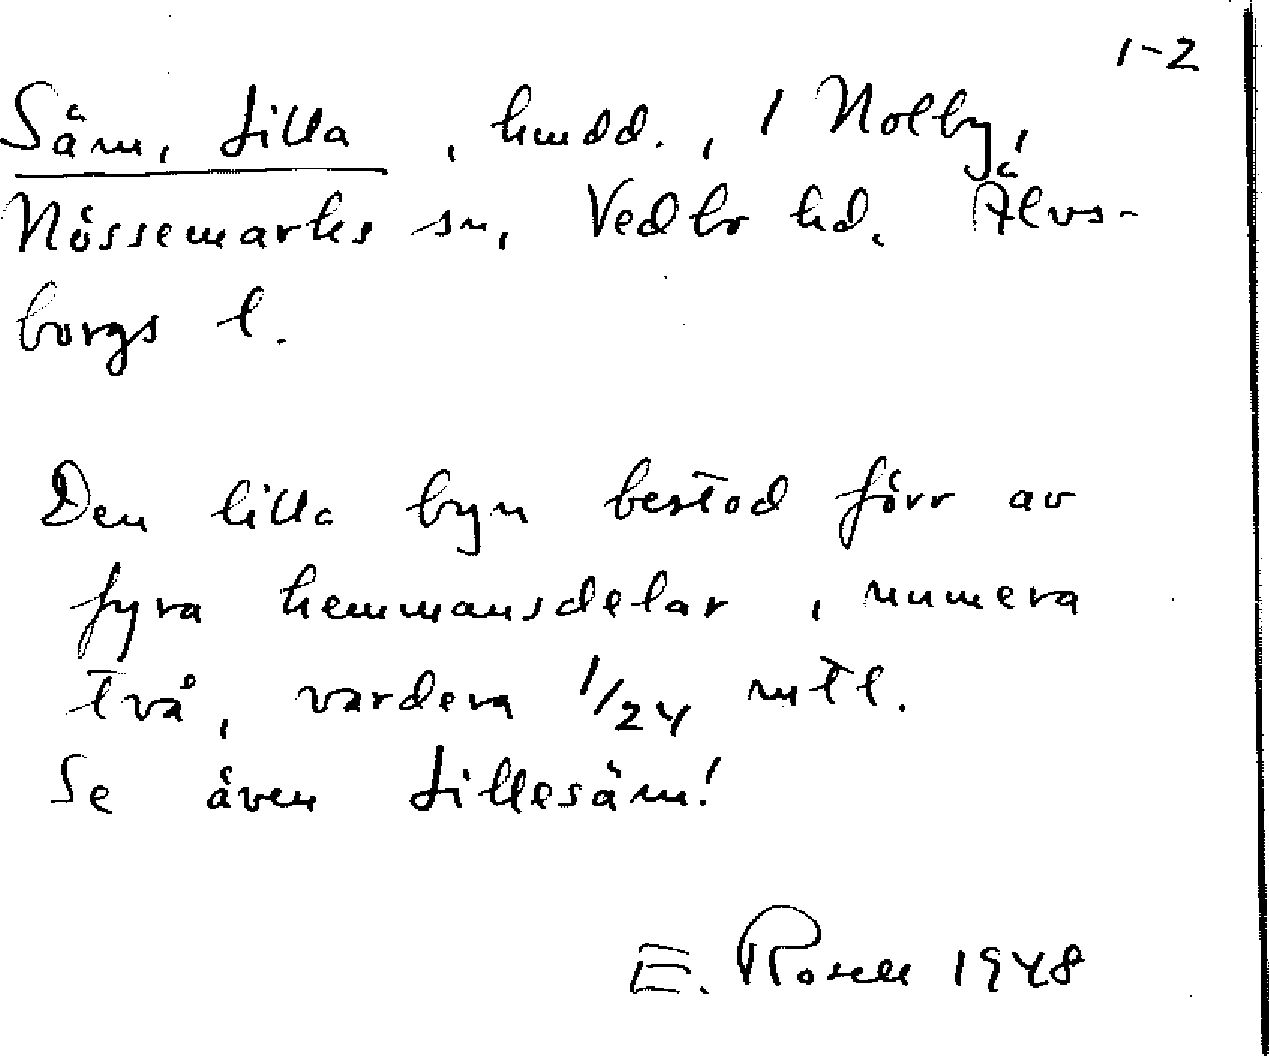 1-2
Säm, Lilla, hmdd., 1 Nolby,
Nössemarks sn, Vedbo hd. Älvs-
borgs l.
Den lilla byn bestod förr av
fyra hemmansdelar, numera
två, vardera 1/24 mtl.
Se även Lillesäm!
E. Rosell 1948